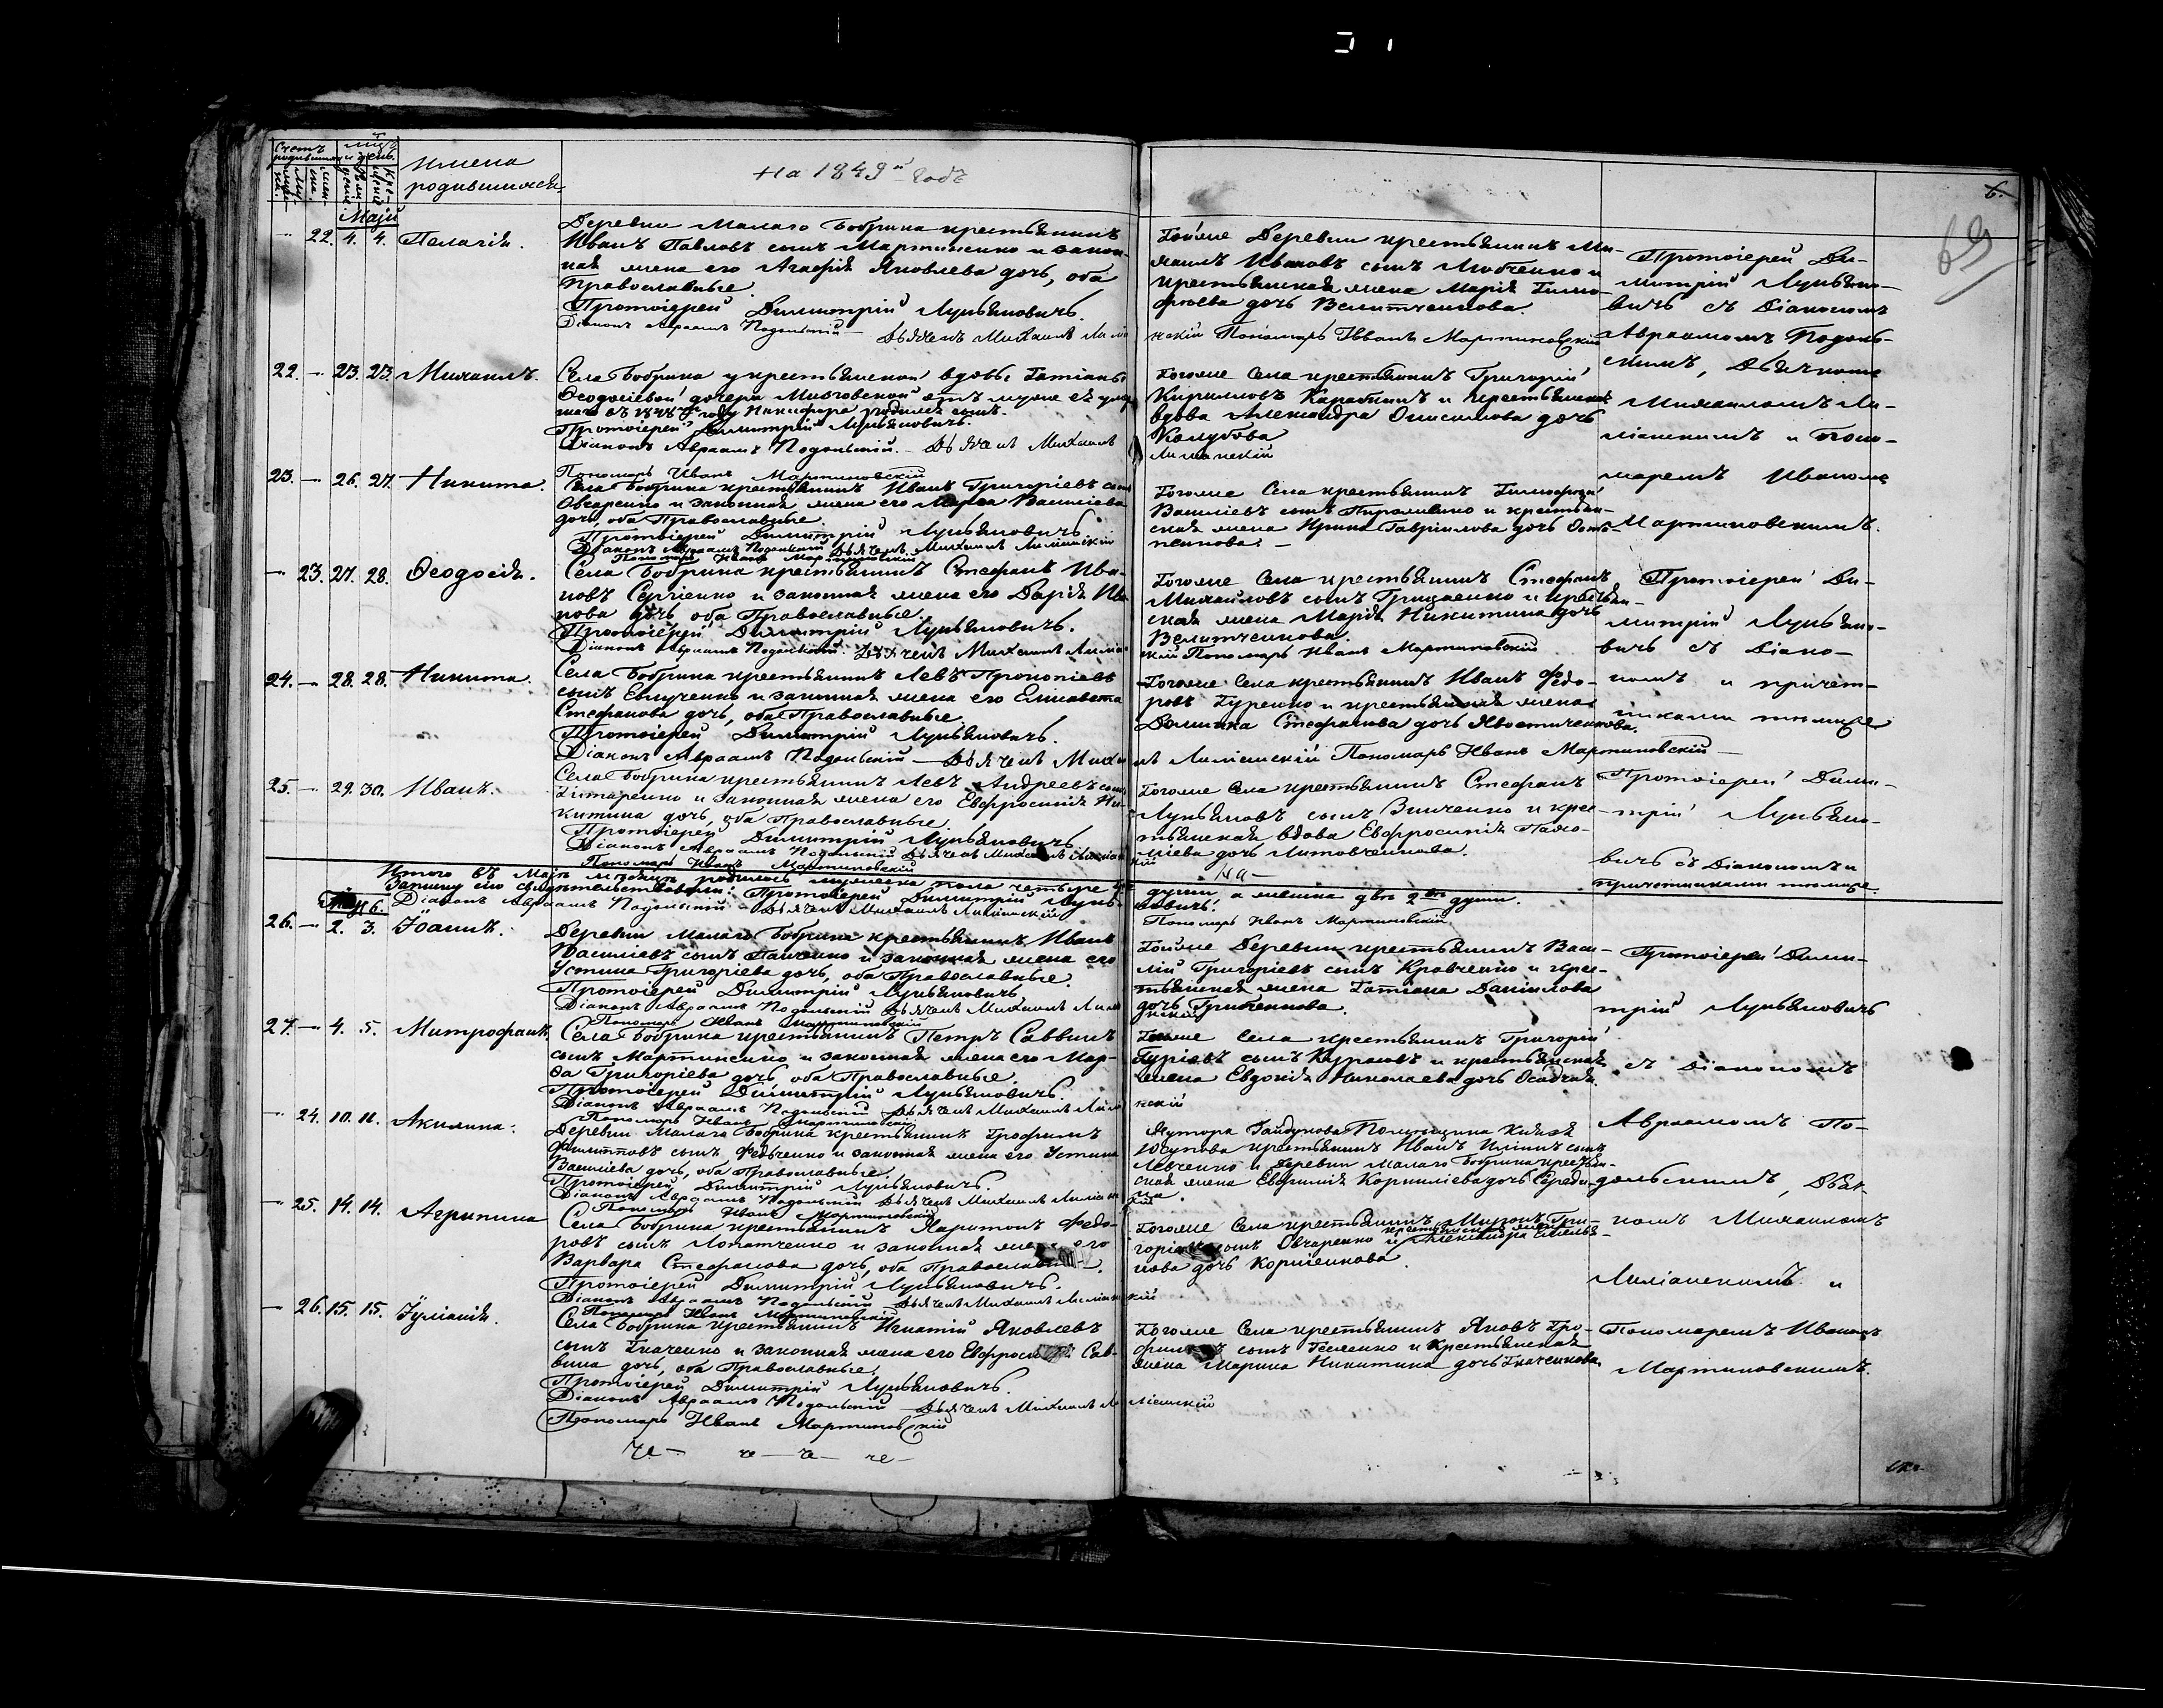 Счетъ родившихся
мѣсяцъ и день.
Имена
родившихся.
На 1849й годъ
6.
69
Маія
22. 4. 4. Пелагія.
Деревни Малаго Бобрика крестьянинъ
Иванъ Павловъ сынъ Мартиненко и закон-
ная жена его Агафія Яковлева дочь, оба
Православные
Протоіерей Димитрій Лукьяновичъ.
Діаконъ Авраамъ Подольскій — Дьячекъ Михаилъ
Тойже Деревни крестьянинъ Ми-
хаилъ Ивановъ сынъ Любченко и
крестьянская жена Марія Тимо-
фѣева дочь Велитченкова.
Пономарь Иванъ Мартиновскій
Протоіерей Ди-
митрій Лукьяно-
вичъ съ Діакономъ
Авраамомъ Подоль-
скимъ, Дьячкомъ
Михаиломъ Ли-
манскимъ и Поно-
маремъ Иваномъ
Мартиновскимъ.
22. — 23. 23. Михаилъ.
Села Бобрика у крестьянской вдовы Татіаны
Ѳеодосіевой дочери отъ мужа ея умер-
шаго въ 1848 году Никифора родился сынъ.
Протоіерей Димитрій Лукьяновичъ.
Діаконъ Авраамъ Подольскій. — Дьячекъ Михаилъ
Пономарь Иванъ Мартиновскій
Тогоже Села крестьянинъ Григорій
Кириловъ и крестьянская
вдова Александра Онисимова дочь
23. — 26. 27. Никита.
Села Бобрика крестьянинъ Иванъ Григоріевъ сынъ
Овчаренко и законная жена его Марѳа Василіева
дочь, оба Православные.
Протоіерей Димитрій Лукьяновичъ
Діаконъ Авраамъ Подольскій Дьячекъ Михаилъ
Пономарь Иванъ Мартиновскій
Тогоже Села крестьянинъ Тимофей
Василіевъ сынъ и крестьян-
ская жена Ирина Гавріилова дочь
— 23. 27. 28. Ѳеодосія.
Села Бобрика крестьянинъ Стефанъ Ива-
новъ Сергіенко и законная жена его Дарія Ива-
нова дочь оба Православные.
Протоіерей Димитрій Лукьяновичъ.
Діаконъ Авраамъ Подольскій. Дьячекъ Михаилъ
Тогоже Села крестьянинъ Стефанъ
Михайловъ сынъ Грицаенко и крестьян-
ская жена Марія Никитина дочь
Велитченкова.
Пономарь Иванъ Мартиновскій
Протоіерей Ди-
митрій Лукьяно-
вичъ съ Діако-
номъ и причет-
никами тѣмиже
24. — 28. 28. Никита.
Села Бобрика крестьянинъ Левъ Прокопіевъ
сынъ и законная жена его Елисавета
Стефанова дочь, оба Православные
Протоіерей Димитрій Лукьяновичъ.
Діаконъ Авраамъ Подольскій — Дьячекъ Михаилъ
Тогоже Села крестьянинъ Иванъ Федо-
ровъ Гуренко и крестьянская жена
Домника Стефанова дочь
Пономарь Иванъ Мартиновскій —
25. — 29. 30. Иванъ.
Села Бобрика крестьянинъ Левъ Андреевъ сынъ
Титаренко и законная жена его Евфросинія Ни-
китина дочь, оба Православные
Протоіерей Димитрій Лукьяновичъ
Діаконъ Авраамъ Подольскій Дьячекъ Михаилъ
Пономарь Иванъ Мартиновскій
Тогоже Села крестьянинъ Стефанъ
Лукьяновъ сынъ Зинченко и крес-
тьянская вдова Евфросинія
дочь Литовченкова.
Протоіерей Дими-
трій Лукьяно-
вичъ съ Діакономъ и
причетниками тѣмиже.
Итого въ Маіи мѣсяцѣ родилось мужеска пола четыре
души, а женска двѣ 2ѣ души.
Запись сію свидѣтельствовали: Протоіерей Димитрій Лукья-
новичъ.
Діаконъ Авраамъ Подольскій — Дьячекъ Михаилъ
Пономарь Иванъ Мартиновскій
26. — 2. 3. Іоаннъ.
Деревни Малаго Бобрика крестьянинъ Иванъ
Василіевъ сынъ Панченко и законная жена его
Устина Григоріева дочь, оба Православные.
Протоіерей Димитрій Лукьяновичъ
Діаконъ Авраамъ Подольскій Дьячекъ Михаилъ
Пономарь Иванъ Мартиновскій
Тойже Деревни крестьянинъ Васи-
лій Григоріевъ сынъ Кравченко и крес-
тьянская жена Татіана Даніилова
дочь Грибенкова.
Протоіерей Дими-
трій Лукьяновичъ
съ Діакономъ
Авраамомъ По-
дольскимъ, Дьяч-
комъ Михаиломъ
и
Пономаремъ Иваномъ
Мартиновскимъ.
27. — 4. 5. Митрофанъ.
Села Бобрика крестьянинъ Петръ Саввинъ
сынъ Мартиненко и законная жена его Мар-
ѳа Григоріева дочь, оба Православные.
Протоіерей Димитрій Лукьяновичъ.
Діаконъ Авраамъ Подольскій Дьячекъ Михаилъ
Пономарь Иванъ Мартиновскій
Тогоже Села крестьянинъ Григорій
Гуріевъ сынъ и крестьянская
жена Евдокія Николаева дочь Осадчая.
— 24. 10. 11. Акилина.
Деревни Малаго Бобрика крестьянинъ Трофимъ
сынъ Федченко и законная жена его Устина
Василіева дочь, оба Православные
Протоіерей Димитрій Лукьяновичъ.
Діаконъ Авраамъ Подольскій Дьячекъ Михаилъ
Пономарь Иванъ Мартиновскій
Хутора Гайдукова Помѣщика Князя
Юсупова крестьянинъ Иванъ Ильинъ сынъ
Левченко и Деревни Малаго Бобрика крестьян-
ская жена Евфимія Корниліева дочь
— 25. 14. 14. Агрипина
Села Бобрика крестьянинъ Харитонъ Федо-
ровъ сынъ Лопатченко и законная жена его
Варвара Стефанова дочь, оба Православные.
Протоіерей Димитрій Лукьяновичъ.
Діаконъ Авраамъ Подольскій — Дьячекъ Михаилъ
Пономарь Иванъ Мартиновскій
Тогоже Села крестьянинъ Миронъ Гри-
горіевъ сынъ Овчаренко и крестьянская жена Александра Емелья-
нова дочь
— 26. 15. 15. Іуліанія.
Села Бобрика крестьянинъ Игнатій Яковлевъ
сынъ Ткаченко и законная жена его Сав-
вина дочь, оба Православные
Протоіерей Димитрій Лукьяновичъ.
Діаконъ Авраамъ Подольскій — Дьячекъ Михаилъ
Пономарь Иванъ Мартиновскій
Тогоже Села крестьянинъ Яковъ Тро-
фимовъ сынъ и Крестьянская
жена Марина Никитина дочь Ткаченкова.